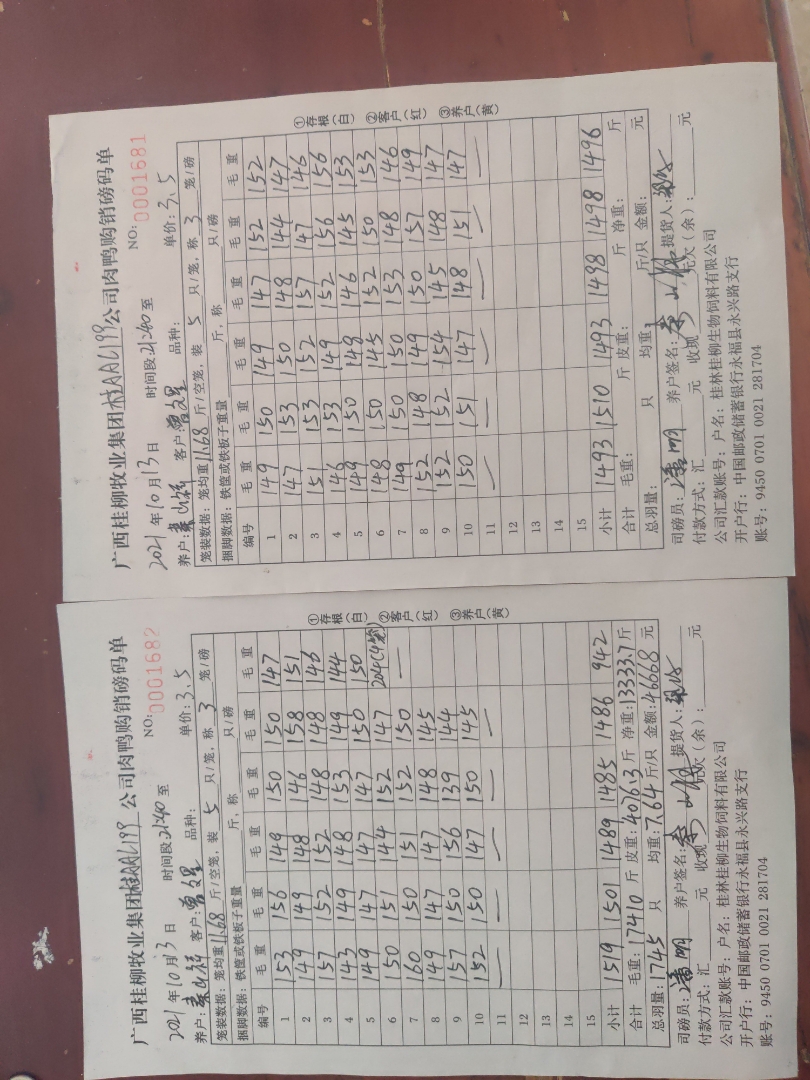 广西桂柳牧业集团桂AAL199公司肉鸭购销磅码单
NO: 0001682
2021年10月13日 时间段21:40至
养户: 客户:曾文星 品种: 单价:3.5
笼装数据:笼均重11.68斤/空笼,装5只/笼,称3笼/磅
捆脚数据:铁筐或铁板子重量 斤,称 只/磅
编号 毛重 毛重 毛重 毛重 毛重 毛重
1 153 156 149 150 150 147
2 149 149 148 146 158 151
3 157 152 152 148 148 146
4 143 149 148 153 149 144
5 149 147 147 147 150 150
6 150 151 144 152 147 204(4笼)
7 160 150 151 152 150 —
8 149 147 147 148 145
9 157 150 156 139 144
10 152 150 147 150 145
11 — — — — —
12
13
14
15
小计 1519 1501 1489 1485 1486 942
合计 毛重:17410斤 皮重:4076.3斤 净重:13333.7斤
总羽量:1745只 均重:7.64斤/只 金额:46668元
司磅员:潘明 养户签名: 提货人:
付款方式:汇 元 收现 元欠(余): 元
公司汇款账号:户名:桂林桂柳生物饲料有限公司
开户行:中国邮政储蓄银行永福县永兴路支行
账号:9450 0701 0021 281704
①存根(白) ②客户(红) ③养户(黄)
广西桂柳牧业集团桂AAL199公司肉鸭购销磅码单
NO: 0001681
2021年10月13日 时间段21:40至
养户: 客户:曾文星 品种: 单价:3.5
笼装数据:笼均重11.68斤/空笼,装5只/笼,称3笼/磅
捆脚数据:铁筐或铁板子重量 斤,称 只/磅
编号 毛重 毛重 毛重 毛重 毛重 毛重
1 149 150 149 147 152 152
2 147 153 150 148 144 147
3 151 153 152 157 147 146
4 146 153 149 152 156 156
5 149 150 148 146 145 153
6 148 150 145 152 150 153
7 149 150 150 153 148 146
8 152 148 149 150 157 149
9 152 152 154 145 148 147
10 150 151 147 148 151 147
11 — — — — — —
12
13
14
15
小计 1493 1510 1493 1498 1498 1496
合计 毛重: 斤 皮重: 斤 净重: 斤
总羽量: 只 均重: 斤/只 金额: 元
司磅员:潘明 养户签名: 提货人:
付款方式:汇 元 收现 元欠(余): 元
公司汇款账号:户名:桂林桂柳生物饲料有限公司
开户行:中国邮政储蓄银行永福县永兴路支行
账号:9450 0701 0021 281704
①存根(白) ②客户(红) ③养户(黄)